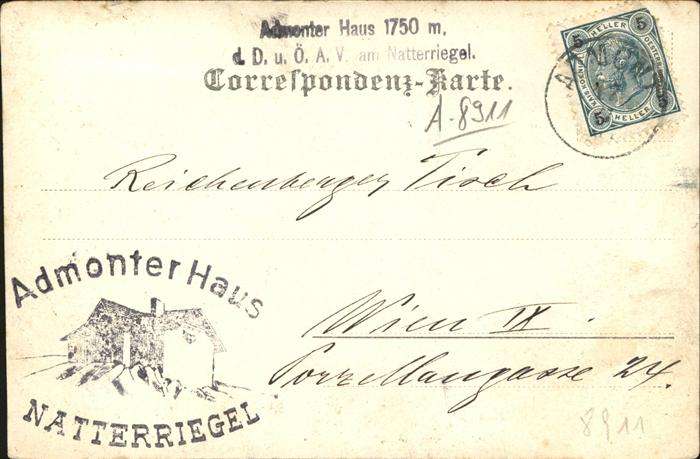 Admonter Haus 1750 m.
d. D. u. Ö. A. V. am Natterriegel.
Correspondenz-Karte.
A-8911
5 HELLER 5
5 HELLER 5
Reichenberger Tisch
Admonter Haus
NATTERRIEGEL
Wien IX.
Porzellangasse 24.
8911